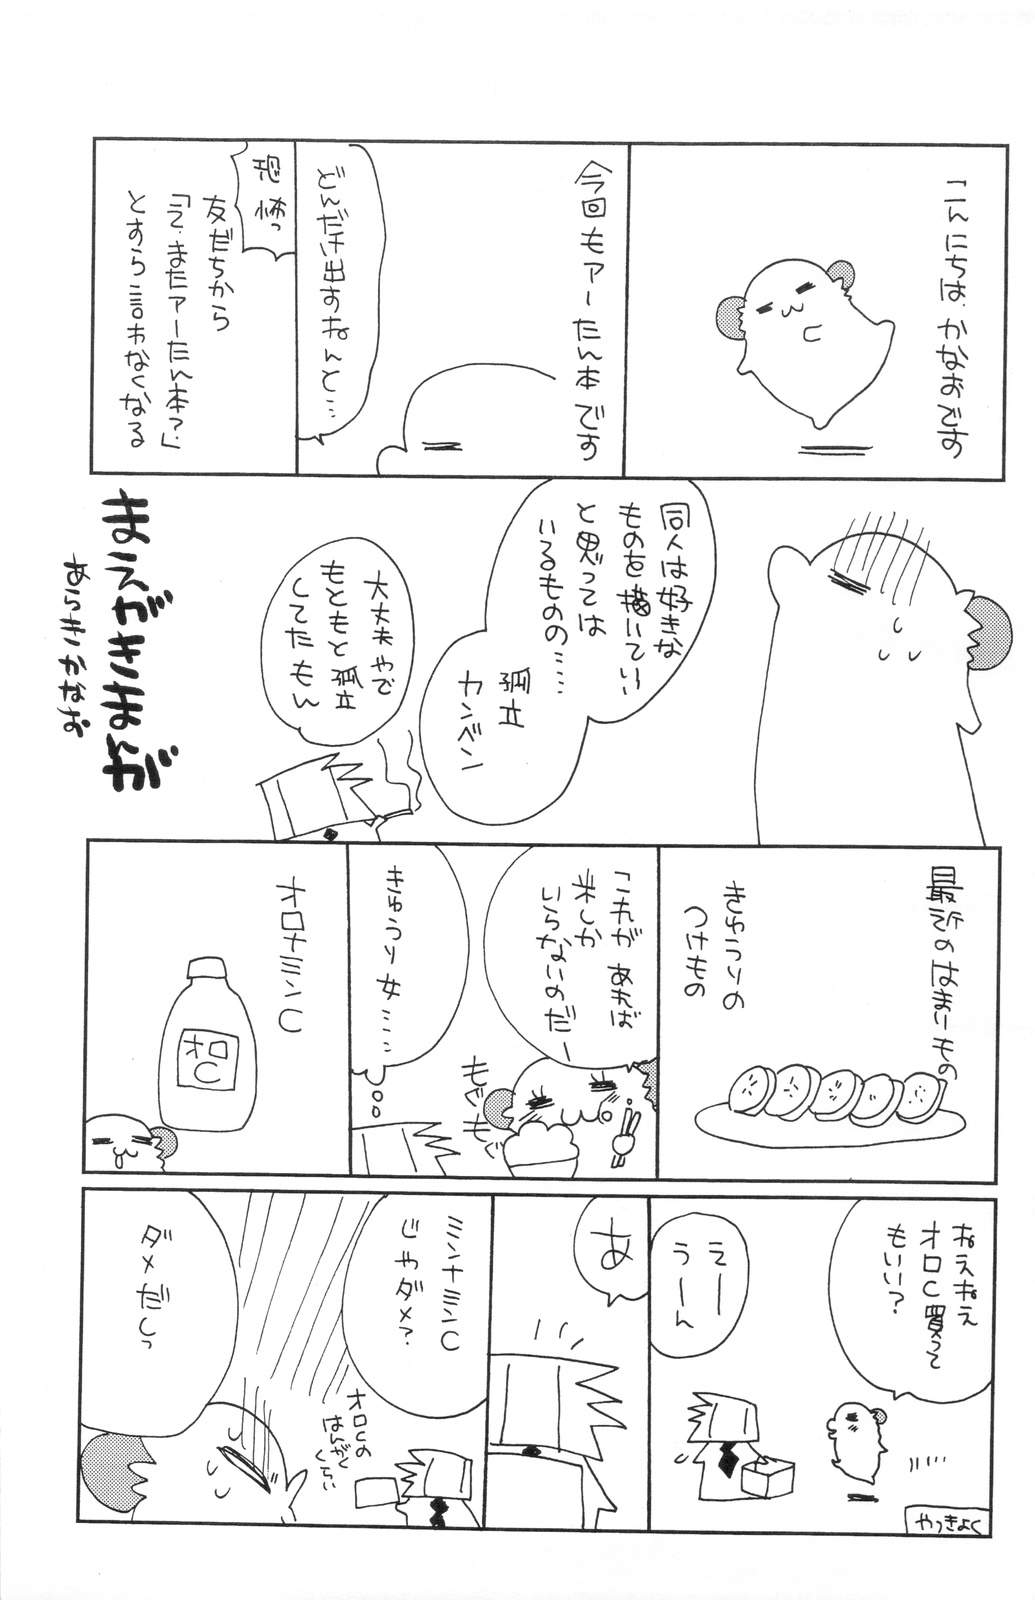 こんにちは、かなおです
今回もアーたん本です
どんだけ出すねんと…
恐怖っ
友だちから
「え、またアーたん本?」
とすら言わなくなる
同人は好きな
ものを描いていい
と思っては
いるものの……
孤立
カンベン
大丈夫やで
もともと孤立
してたもん
まえがきまんが
あらきかなお
最近のはまーもの
きゅうりの
つけもの
「これがあれば
米しか
いらないのだー
もぐもぐ
きゅうり女……
オロナミンC
オロ
C
ねえねえ
オロC買って
もいい?
えー
うーん
やっきょく
あ
ミンナミンC
じゃダメ?
オロCの
はんがく
くらい
ダメだしっ